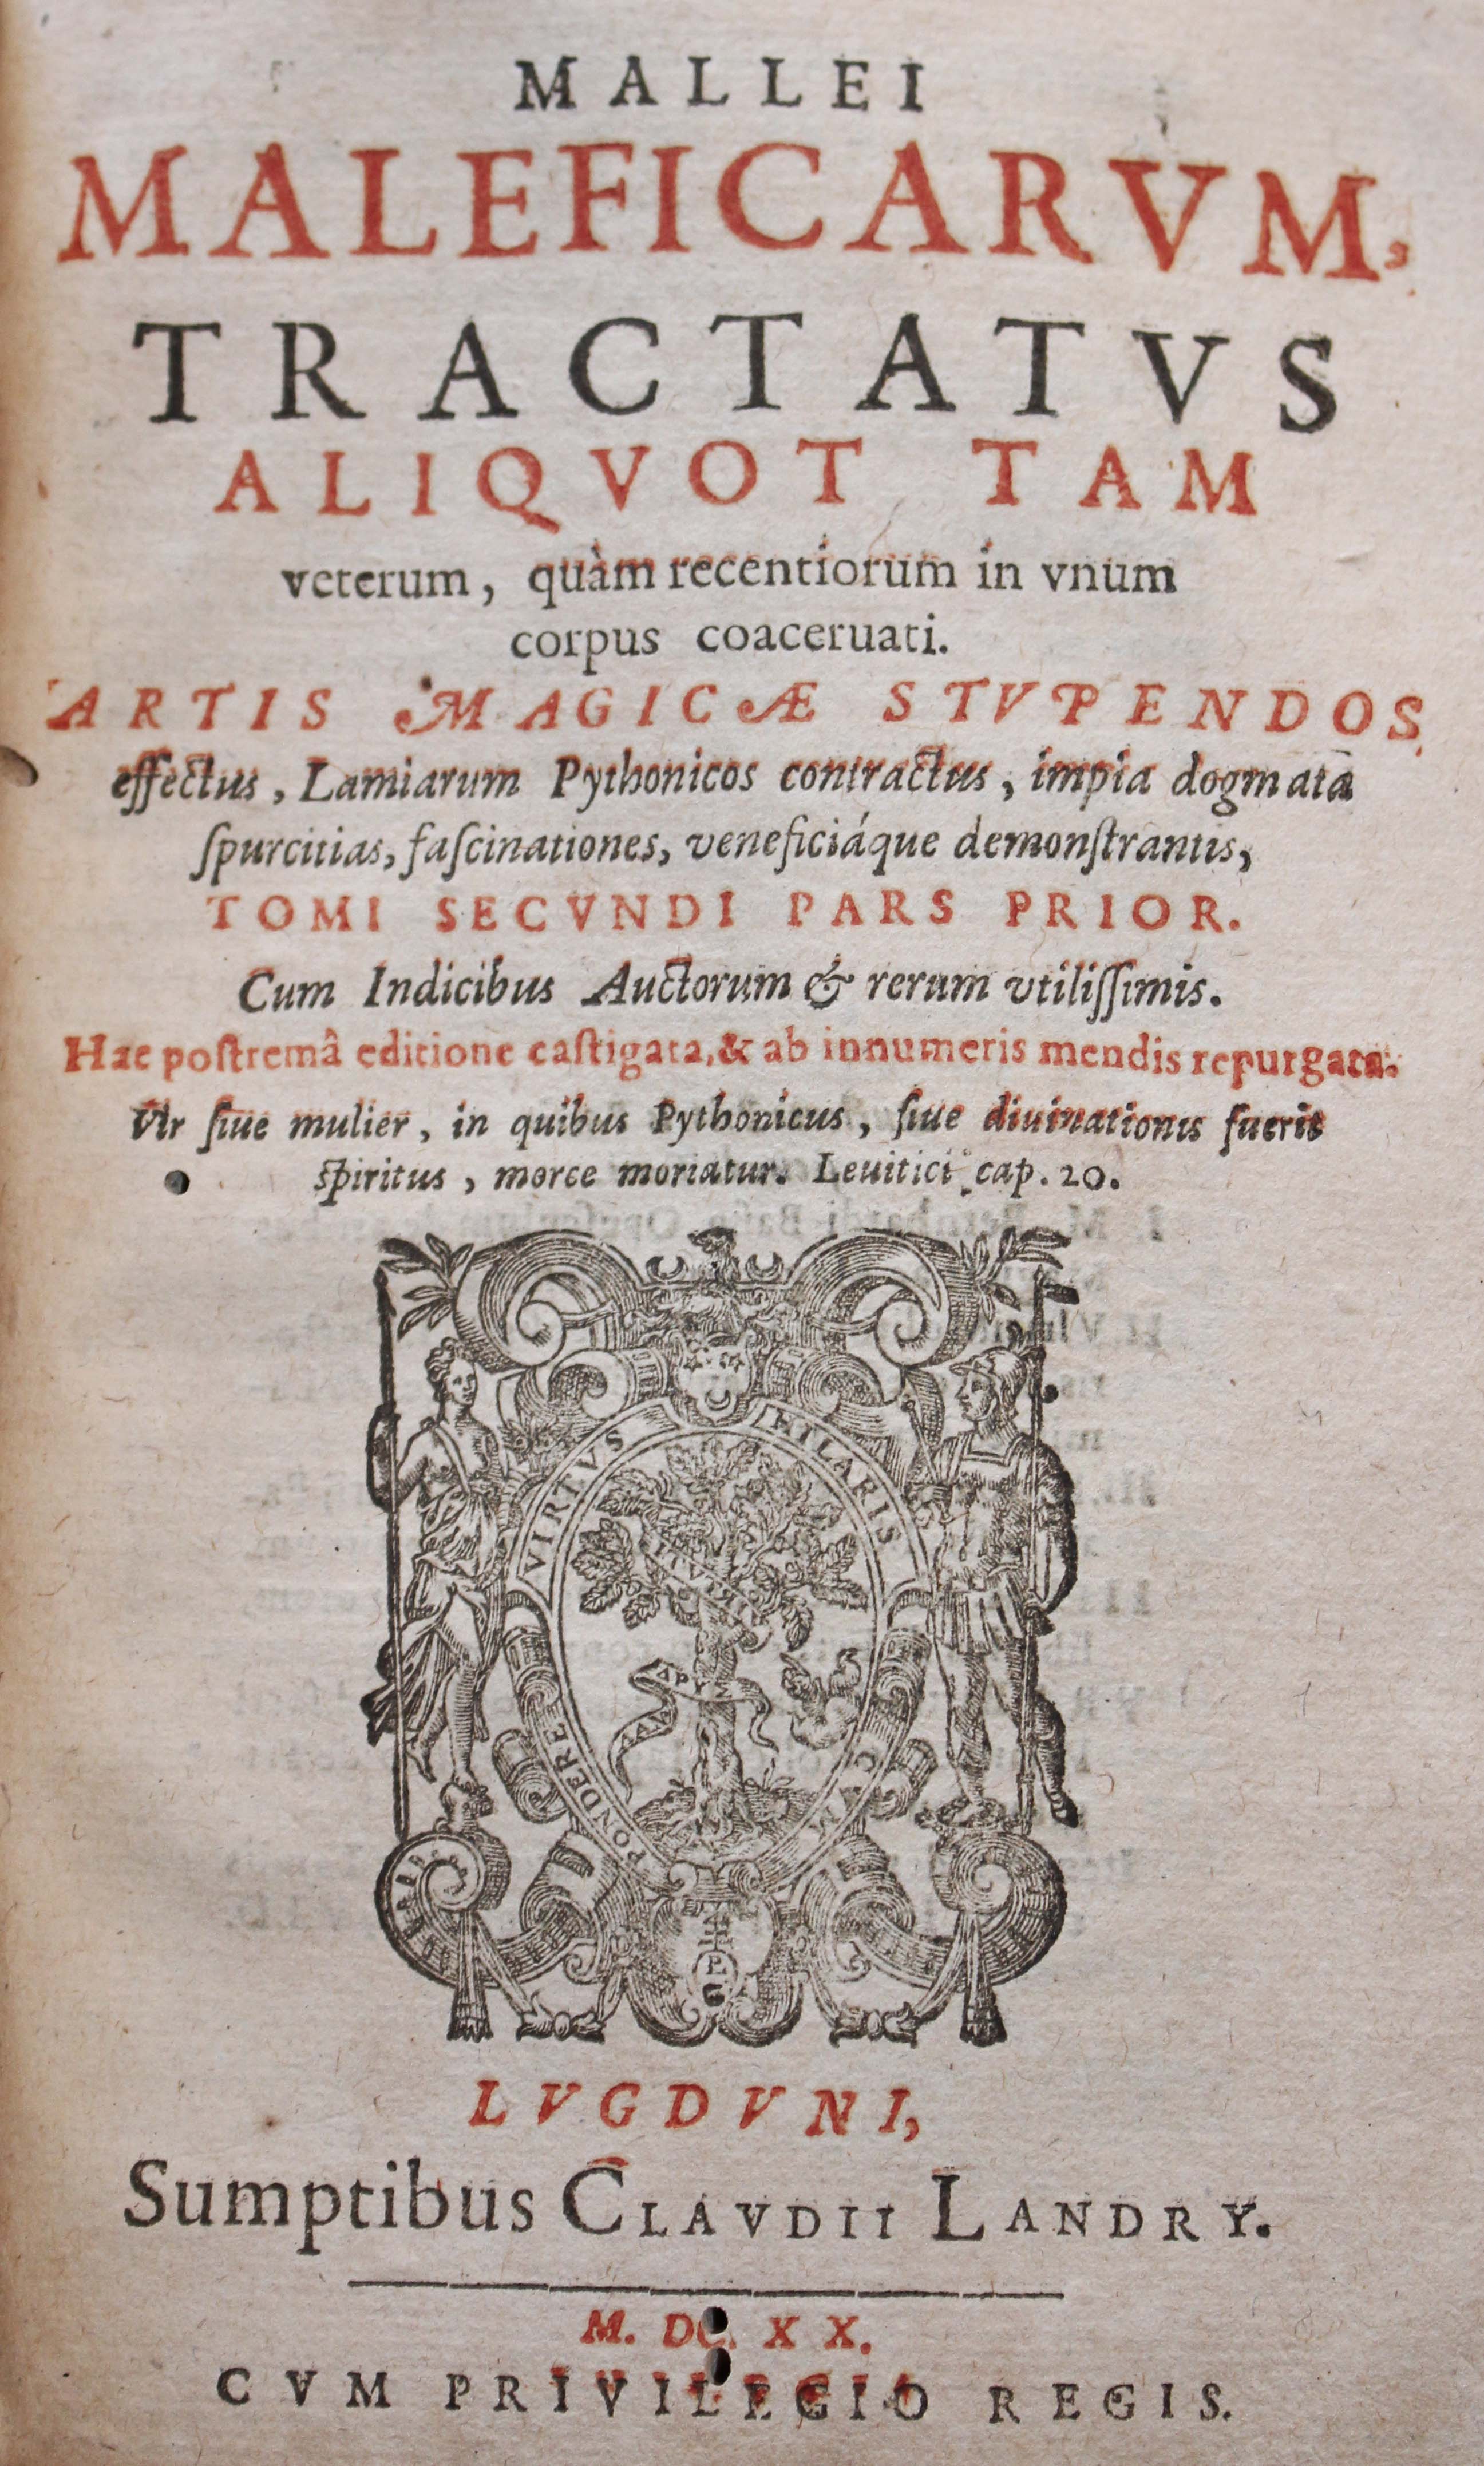 MALLEI
MALEFICARVM,
TRACTATVS
ALIQVOT TAM
veterum, quàm recentiorum in vnum
corpus coaceruati.
ARTIS MAGICÆ STVPENDOS
effectus, Lamiarum Pythonicos contractus, impia dogmata
ſpurcitias, faſcinationes, veneficiáque demonſtrantis,
TOMI SECVNDI PARS PRIOR.
Cum Indicibus Auctorum & rerum vtiliſſimis.
Hac poſtremâ editione caſtigata, & ab innumeris mendis repurgata.
Vir ſiue mulier, in quibus Pythonicus, ſiue diuinationis fuerit
ſpiritus, morte moriatur. Leuitici cap. 20.
VIRTVS HILARIS
PONDERE
P
G
LVGDVNI,
Sumptibus CLAVDII LANDRY.
M. DC. XX.
CVM PRIVILEGIO REGIS.